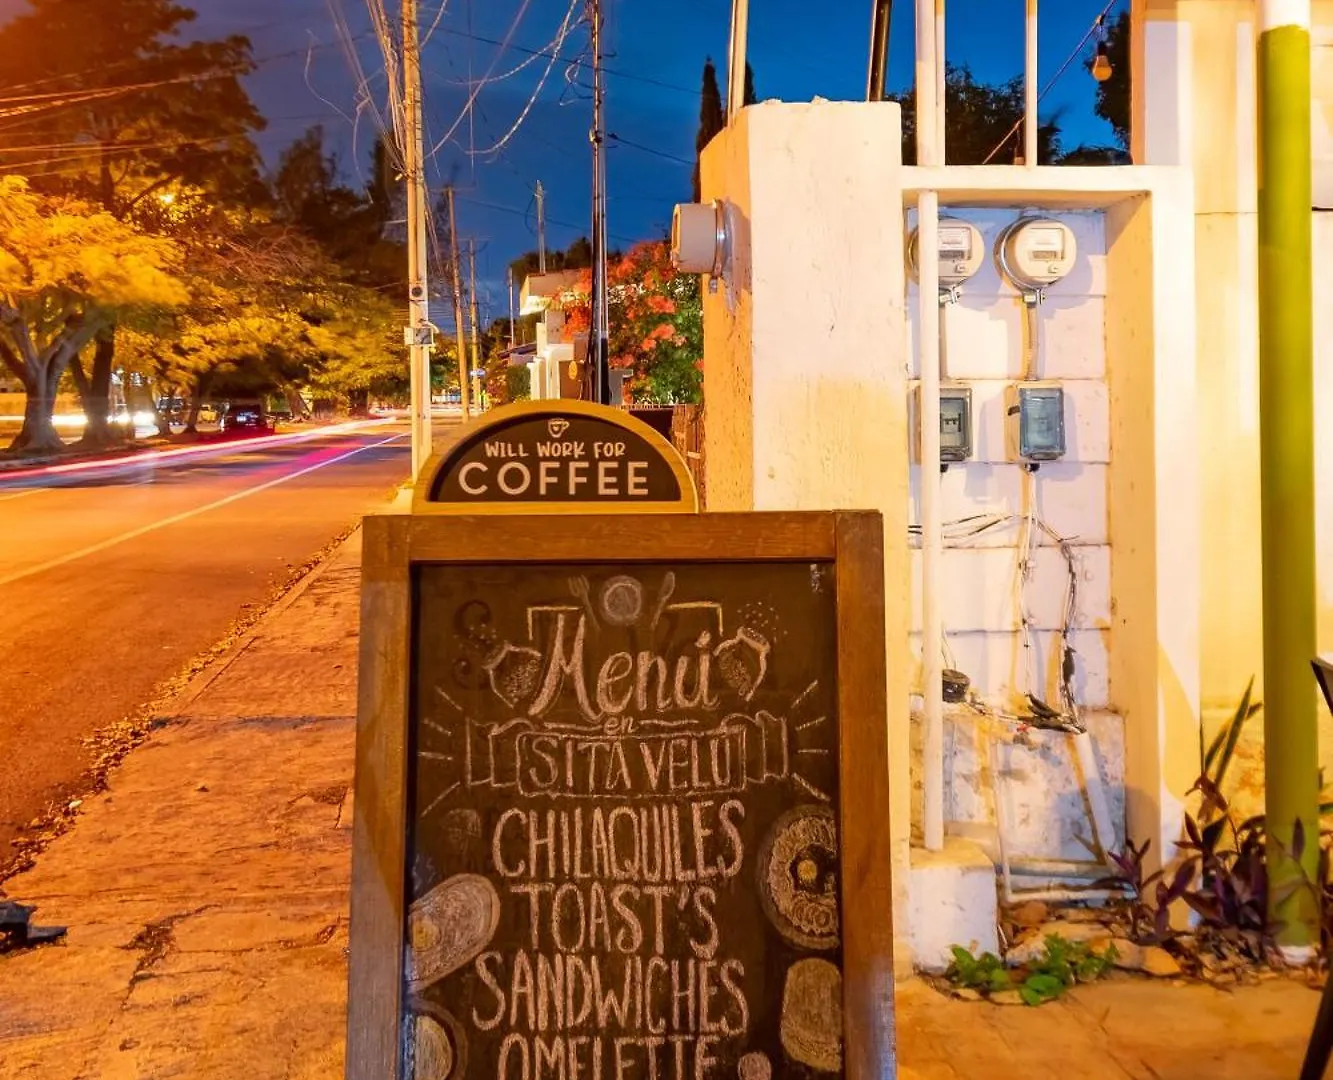 WILL WORK FOR
COFFEE
Menú
en
SITA VELÚ
CHILAQUILES
TOAST'S
SANDWICHES
OMELETTE